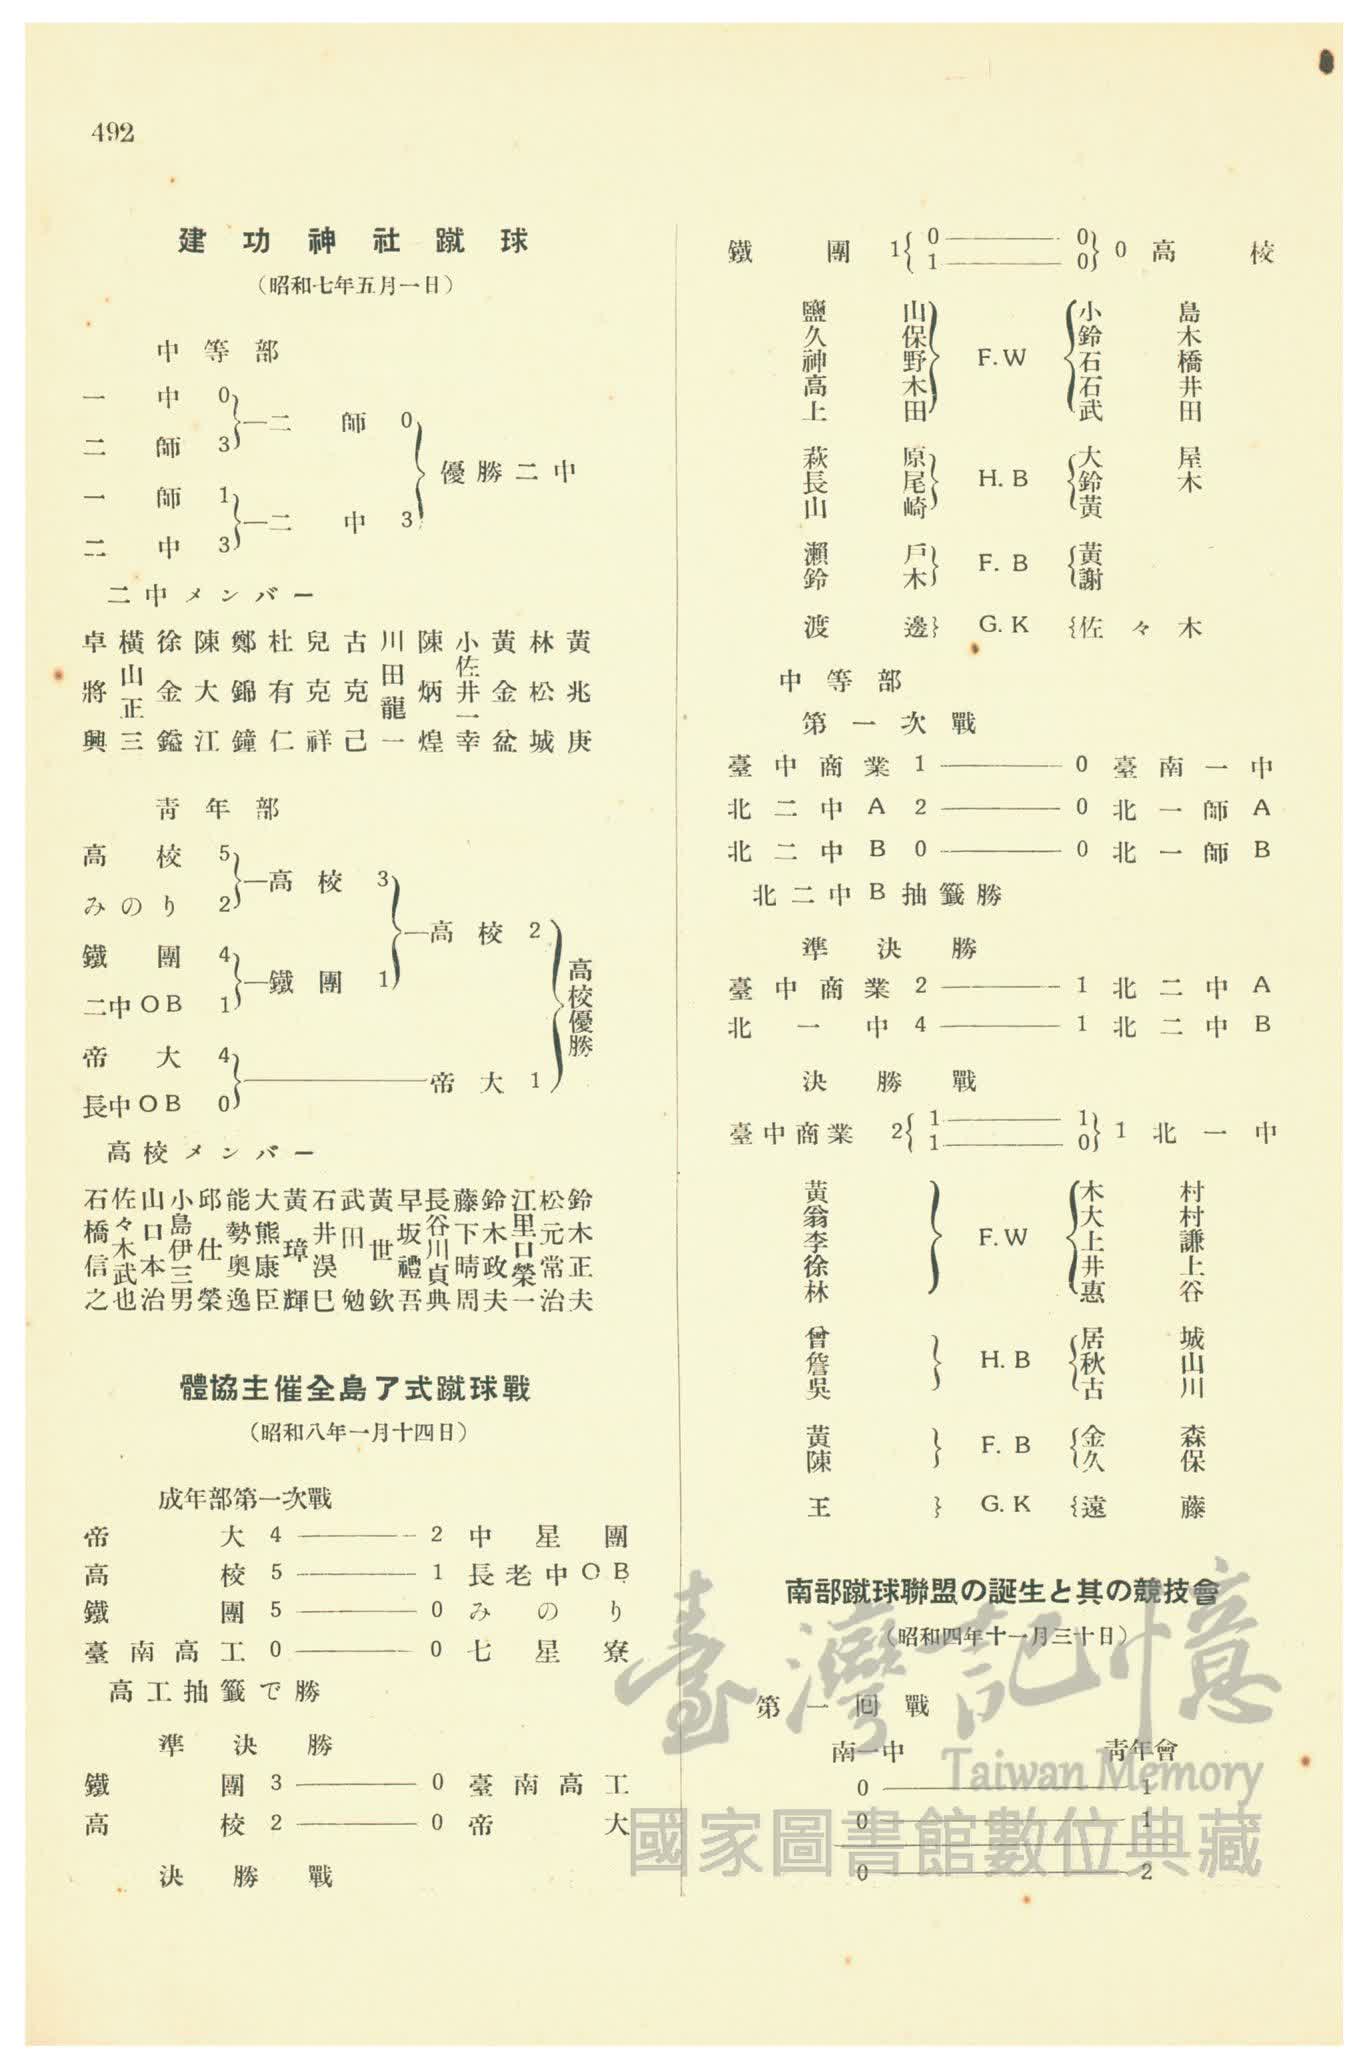 492
建功神社蹴球
（昭和七年五月一日）
中等部
一中 0
二師 3
二師 0
一師 1
二中 3
二中 3
優勝二中
二中メンバー
卓將興
横山正三
徐金鎰
陳大江
鄭錦鐘
杜有仁
兒克祥
古克己
川田龍一
陳炳煌
小佐井一幸
黃金盆
林松城
黃兆庚
靑年部
高校 5
みのり 2
高校 3
鐵團 4
二中OB 1
鐵團 1
高校 2
帝大 4
長中OB 0
帝大 1
高校優勝
高校メンバー
石橋信之
佐々木武也
山口本治
小島伊三男
邱仕榮
能勢奧逸
大熊康臣
黃璋輝
石井淏巳
武田勉
黃世欽
早坂禮吾
長谷川貞典
藤下晴周
鈴木政夫
江里口榮一
松元常治
鈴木正夫
體協主催全島ア式蹴球戰
（昭和八年一月十四日）
成年部第一次戰
帝大 4 ——— 2 中星團
高校 5 ——— 1 長老中OB
鐵團 5 ——— 0 みのり
臺南高工 0 ——— 0 七星寮
高工抽籤で勝
準決勝
鐵團 3 ——— 0 臺南高工
高校 2 ——— 0 帝大
決勝戰
鐵團 1 { 0 ——— 0 } 0 高校
1 ——— 0
鹽山 小島
久保 鈴木
神野 F.W 石橋
高木 石井
上田 武田
萩原 大屋
長尾 H.B 鈴木
山崎 黃
瀨戶 F.B 黃
鈴木 謝
渡邊 G.K 佐々木
中等部
第一次戰
臺中商業 1 ——— 0 臺南一中
北二中A 2 ——— 0 北一師A
北二中B 0 ——— 0 北一師B
北二中B抽籤勝
準決勝
臺中商業 2 ——— 1 北二中A
北一中 4 ——— 1 北二中B
決勝戰
臺中商業 2 { 1 ——— 1 } 1 北一中
1 ——— 0
黃 木村
翁 大村
李 F.W 上謙
徐 井上
林 惠谷
曾 居城
詹 H.B 秋山
吳 古川
黃 F.B 金森
陳 久保
王 G.K 遠藤
南部蹴球聯盟の誕生と其の競技會
（昭和四年十一月三十日）
第一回戰
南一中 靑年會
0 ——— 1
0 ——— 1
0 ——— 2
臺灣記憶
Taiwan Memory
國家圖書館數位典藏